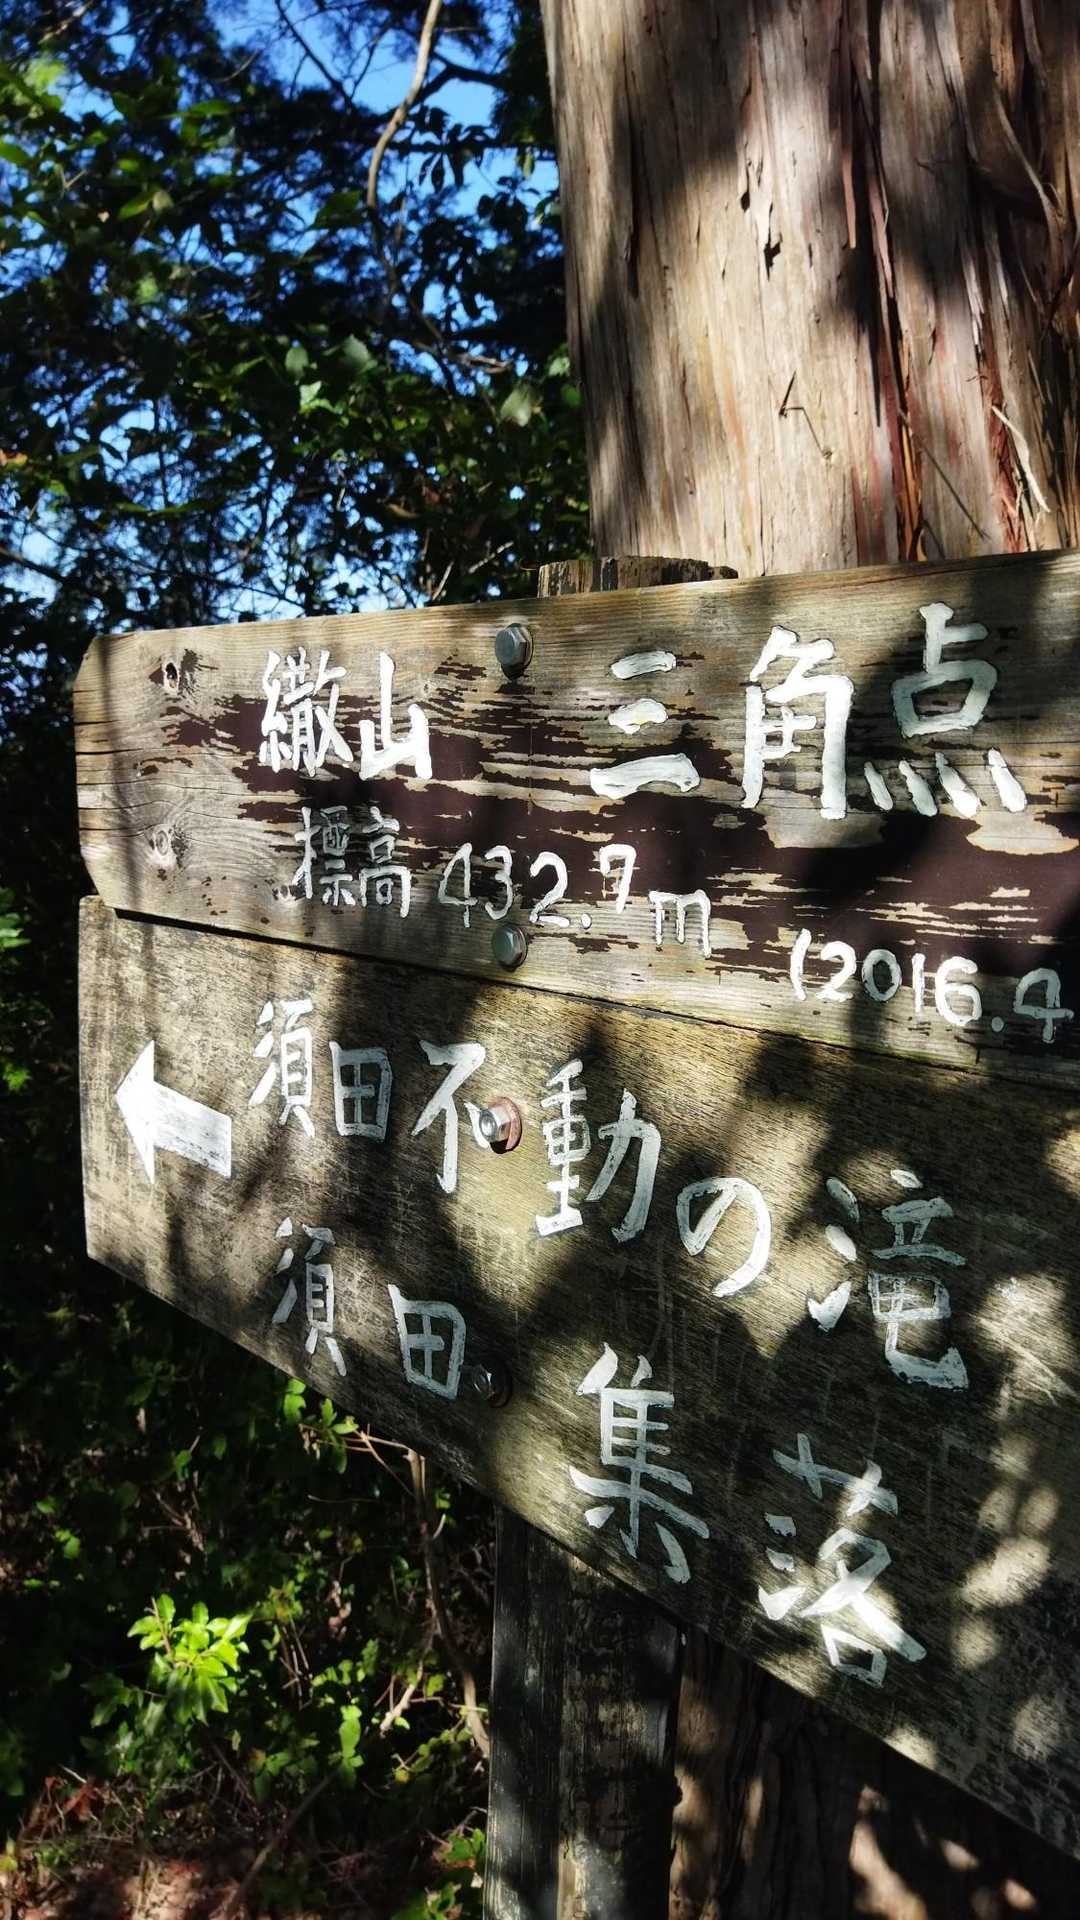 繖山 三角点
標高 432.9m
(2016.4
須田不動の滝
須田 集落